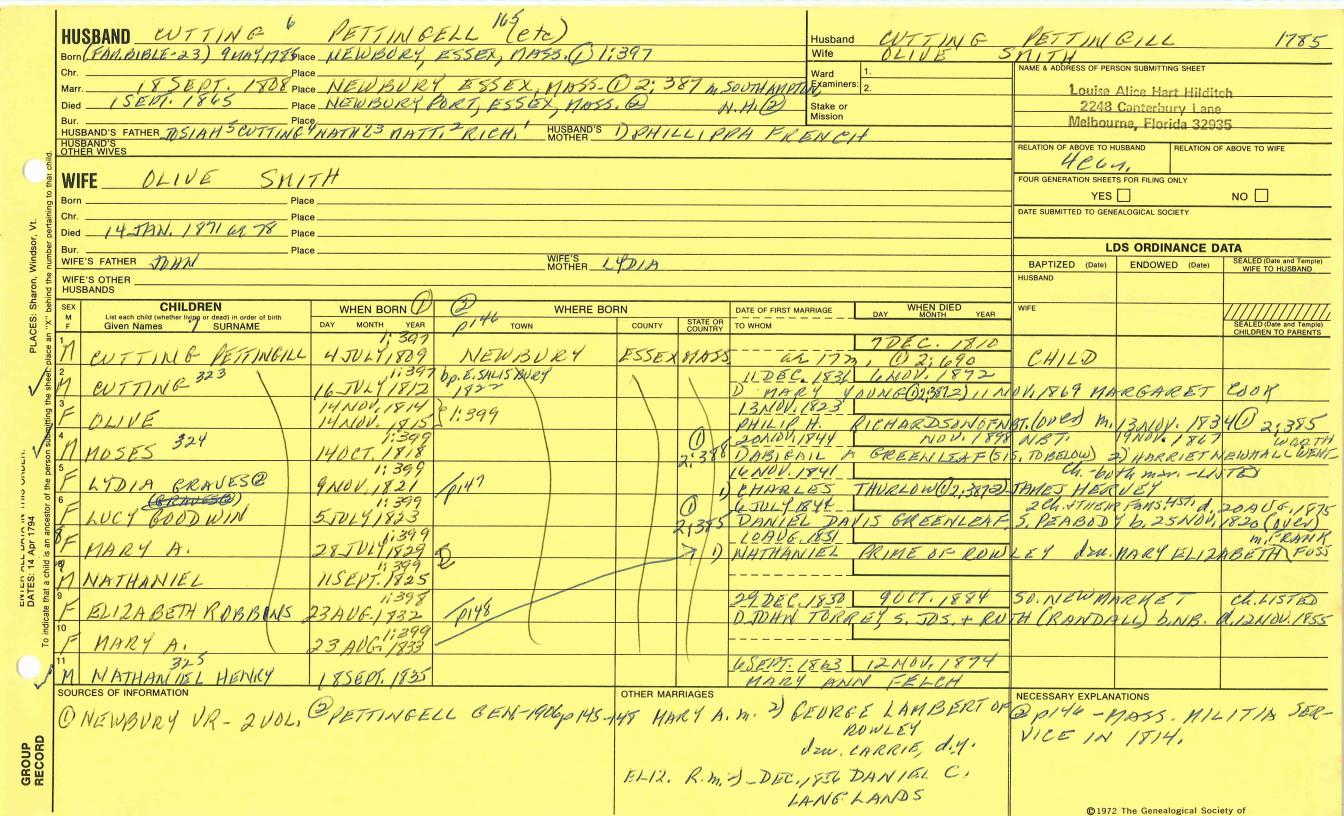 HUSBAND CUTTING 6 PETTINGELL 165 (etc)
Husband CUTTING PETTINGILL 1785
Wife OLIVE SMITH
Born (FAM. BIBLE-23) 9 MAY 1785 Place NEWBURY, ESSEX, MASS. ① 1:397
Chr. Place
Marr. 18 SEPT. 1808 Place NEWBURY ESSEX, MASS. ① 2:387 m. SOUTHAMPTON, N.H. ②
Died 1 SEPT. 1865 Place NEWBURYPORT, ESSEX, MASS. ②
Bur. Place
Ward Examiners: 1. 2.
Stake or Mission
NAME & ADDRESS OF PERSON SUBMITTING SHEET
Louise Alice Hart Hilditch
2248 Canterbury Lane
Melbourne, Florida 32935
HUSBAND'S FATHER JOSIAH 5 CUTTING 4 NATH'L 3 MATT. 2 RICH. 1 HUSBAND'S MOTHER 1) PHILLIPPA FRENCH
HUSBAND'S OTHER WIVES
RELATION OF ABOVE TO HUSBAND RELATION OF ABOVE TO WIFE
WIFE OLIVE SMITH
FOUR GENERATION SHEETS FOR FILING ONLY
YES NO
Born Place
Chr. Place
Died 14 JAN. 1871 or 78 Place
Bur. Place
DATE SUBMITTED TO GENEALOGICAL SOCIETY
WIFE'S FATHER JOHN WIFE'S MOTHER LYDIA
WIFE'S OTHER HUSBANDS
LDS ORDINANCE DATA
BAPTIZED (Date) ENDOWED (Date) SEALED (Date and Temple) WIFE TO HUSBAND
HUSBAND
WIFE
SEALED (Date and Temple) CHILDREN TO PARENTS
SEX M F
CHILDREN
List each child (whether living or dead) in order of birth
Given Names 7 SURNAME
WHEN BORN ①
DAY MONTH YEAR
② p146 WHERE BORN
TOWN COUNTY STATE OR COUNTRY
DATE OF FIRST MARRIAGE
TO WHOM
WHEN DIED
DAY MONTH YEAR
1 M CUTTING PETTINGILL 1:397 4 JULY 1809 NEWBURY ESSEX MASS 7 DEC. 1810 ae 17m, ① 2:690 CHILD
2 M CUTTING 323 1:397 16 JULY 1812 bp. E. SALISBURY 1822 11 DEC. 1836 6 NOV. 1872
1) MARY YOUNG ① 2:387 2) 11 NOV. 1869 MARGARET COOK
3 F OLIVE 14 NOV. 1814 14 NOV. 1815 } 1:399 13 NOV. 1823
PHILIP H. RICHARDSON OF NBT. (OVER) m. 13 NOV. 1834 ① 2:385
4 M MOSES 324 1:399 14 OCT. 1818 ① 2:388 20 NOV. 1844 NOV. 1898 NBT. 19 NOV. 1867
1) ABIGAIL A GREENLEAF (SIS. TO BELOW) 2) HARRIET NEWHALL WENTWORTH
5 F LYDIA GRAVES ② 1:399 9 NOV. 1821 p147 16 NOV. 1841 Ch.-both mar.-LISTED
1) CHARLES THURLOW ① 2:387 2) JAMES HERVEY
6 F LUCY GOODWIN 1:399 5 JULY 1823 ① 2:385 6 JULY 1844 20 AUG. 1875
DANIEL DAVIS GREENLEAF, S. PEABODY b. 25 NOV. 1820 (OVER)
F MARY A. 1:399 28 JULY 1829 10 AUG. 1851 m. FRANK
1) NATHANIEL PRIME OF ROWLEY dau. MARY ELIZABETH FOSS
M NATHANIEL 1:399 11 SEPT. 1825
9 F ELIZABETH ROBBINS 1:398 23 AUG. 1832 p148 29 DEC. 1850 9 OCT. 1884 SO. NEWMARKET Ch. LISTED
1) JOHN TORREY, S. JOS. + RUTH (RANDALL) b. NB. d. 12 NOV. 1855
10 F MARY A. 1:399 23 AUG 1833
11 M NATHANIEL HENRY 325 18 SEPT. 1835 6 SEPT. 1863 12 NOV. 1874
MARY ANN FELCH
SOURCES OF INFORMATION
① NEWBURY VR - 2 VOL. ② PETTINGELL GEN-1906 p145-148
OTHER MARRIAGES
MARY A. m. 2) GEORGE LAMBERT OF ROWLEY
dau. CARRIE, d.y.
ELIZ. R. m. 2) - DEC. 1856 DANIEL C. LANGLANDS
NECESSARY EXPLANATIONS
② p146 - MASS. MILITIA SERVICE IN 1814.
©1972 The Genealogical Society of
PLACES: Sharon, Windsor, Vt.
ENTER ALL DATA IN THIS ORDER:
DATES: 14 Apr 1794
To indicate that a child is an ancestor of the person submitting the sheet, place an "X" behind the number pertaining to that child.
GROUP RECORD